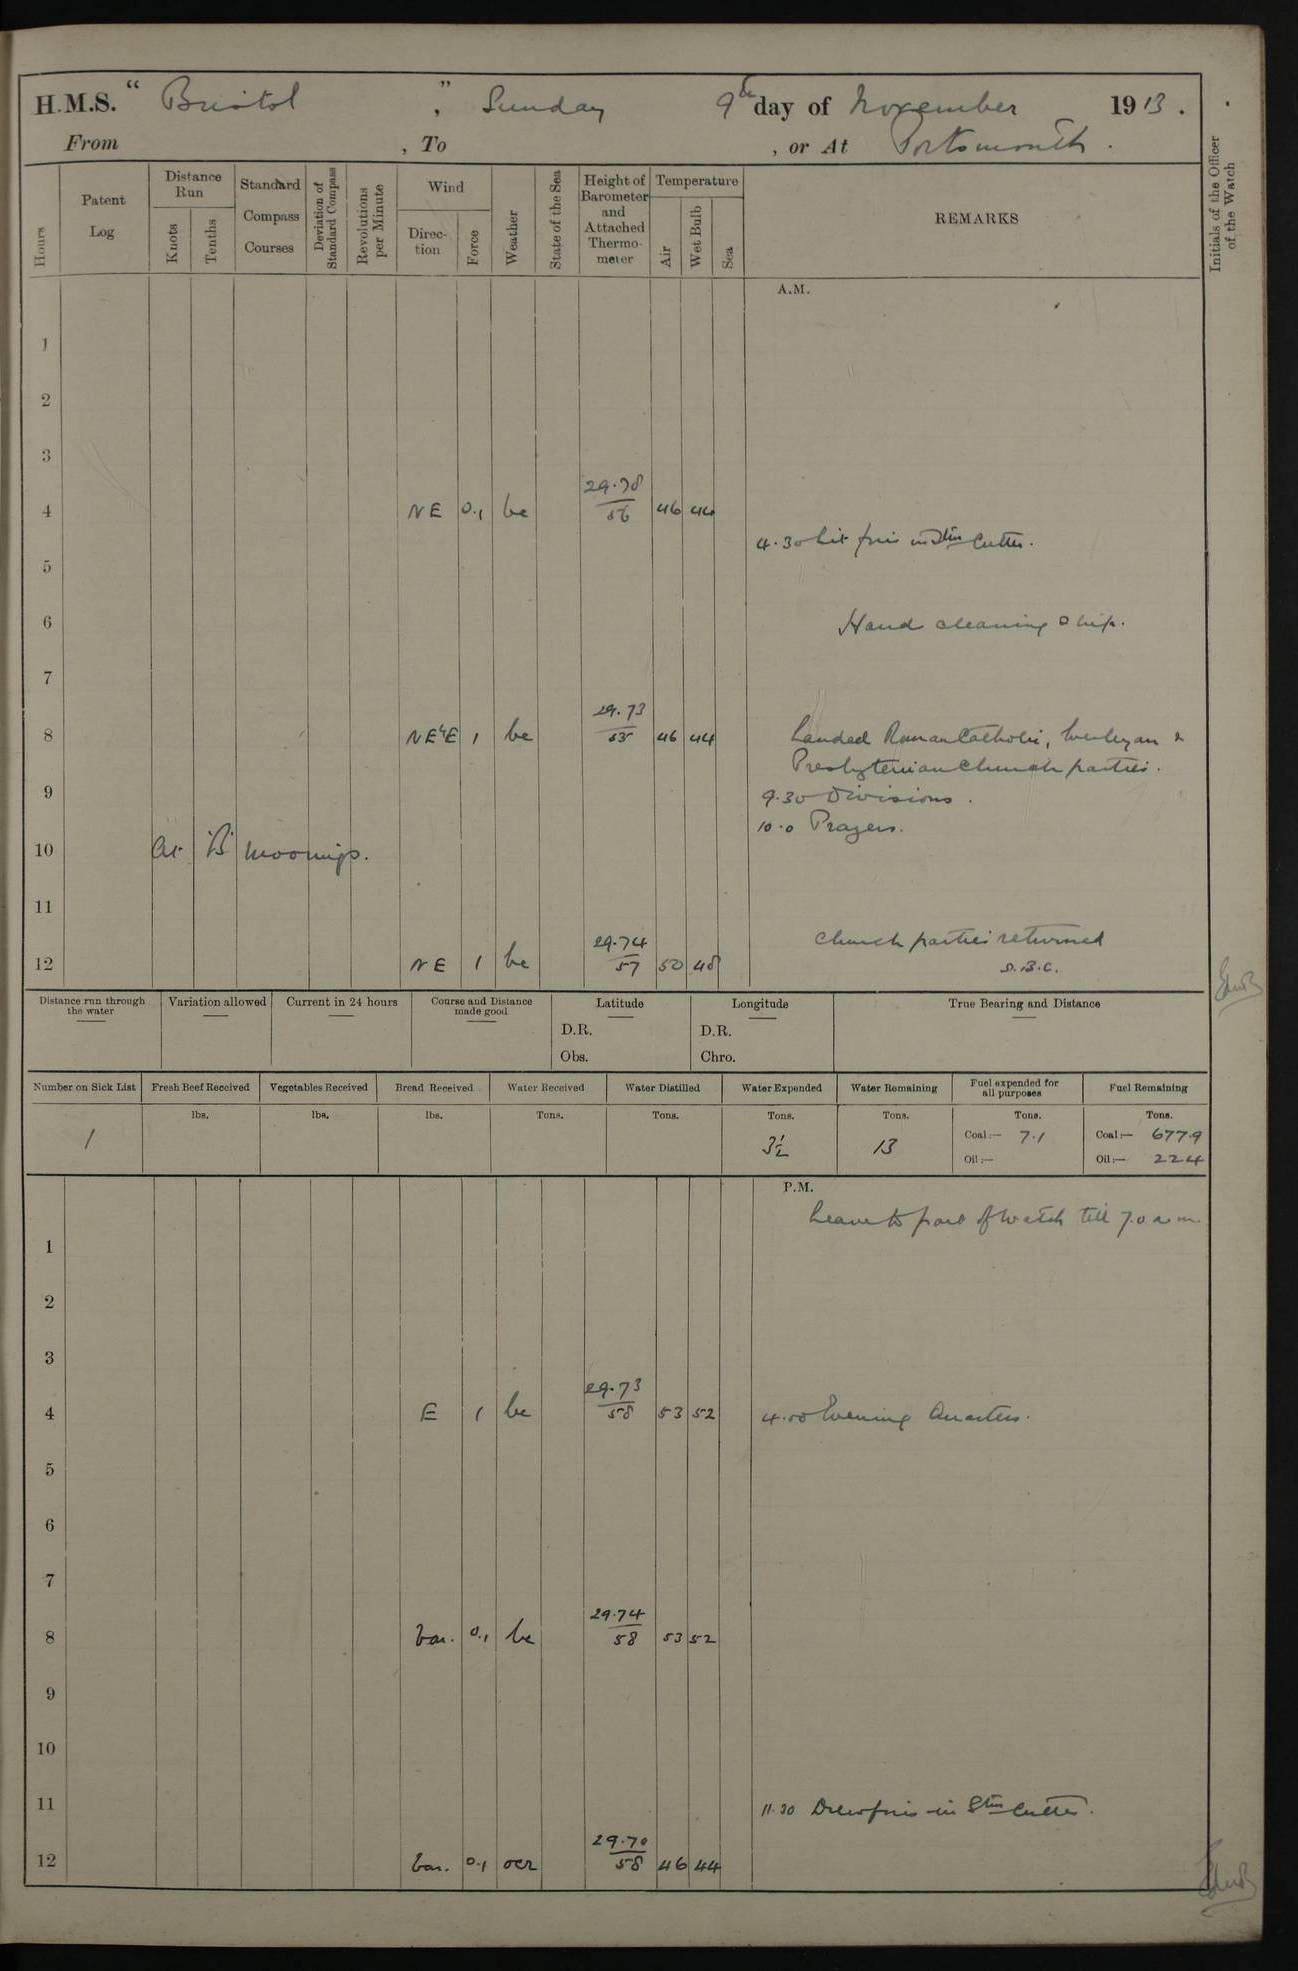 H.M.S. " Bristol ", Sunday 9th day of November 1913.
From , To , or At Portsmouth.
Hours
Patent Log
Distance Run
Knots
Tenths
Standard Compass Courses
Deviation of Standard Compass
Revolutions per Minute
Wind
Direction
Force
Weather
State of the Sea
Height of Barometer and Attached Thermometer
Temperature
Air
Wet Bulb
Sea
REMARKS
Initials of the Officer of the Watch
A.M.
1
2
3
4 NE 0.1 bc 29.78 56 46 44
4.30 Lit fires in Stm Cutter.
5
6 Hands cleaning Ship.
7
8 NE'E 1 bc 29.73 55 46 44 Landed Roman Catholic, Wesleyan &
Presbyterian Church parties.
9 9.30 Divisions.
10.0 Prayers.
10 At 'B' moorings.
11
Church parties returned
12 NE 1 bc 29.74 57 50 48
Distance run through the water
Variation allowed
Current in 24 hours
Course and Distance made good
Latitude
D.R.
Obs.
Longitude
D.R.
Chro.
True Bearing and Distance
Number on Sick List
1
Fresh Beef Received
lbs.
Vegetables Received
lbs.
Bread Received
lbs.
Water Received
Tons.
Water Distilled
Tons.
Water Expended
Tons.
3½
Water Remaining
Tons.
13
Fuel expended for all purposes
Tons.
Coal:— 7.1
Oil:—
Fuel Remaining
Tons.
Coal:— 677.9
Oil:— 224
P.M.
Leave to part of watch till 7.0 a.m.
1
2
3
4 E 1 bc 29.73 58 53 52 4.00 Evening Quarters.
5
6
7
8 Var. 0.1 bc 29.74 58 53 52
9
10
11 11.30 Drew fires in Stm Cutter.
12 Var. 0.1 ocr 29.70 58 46 44